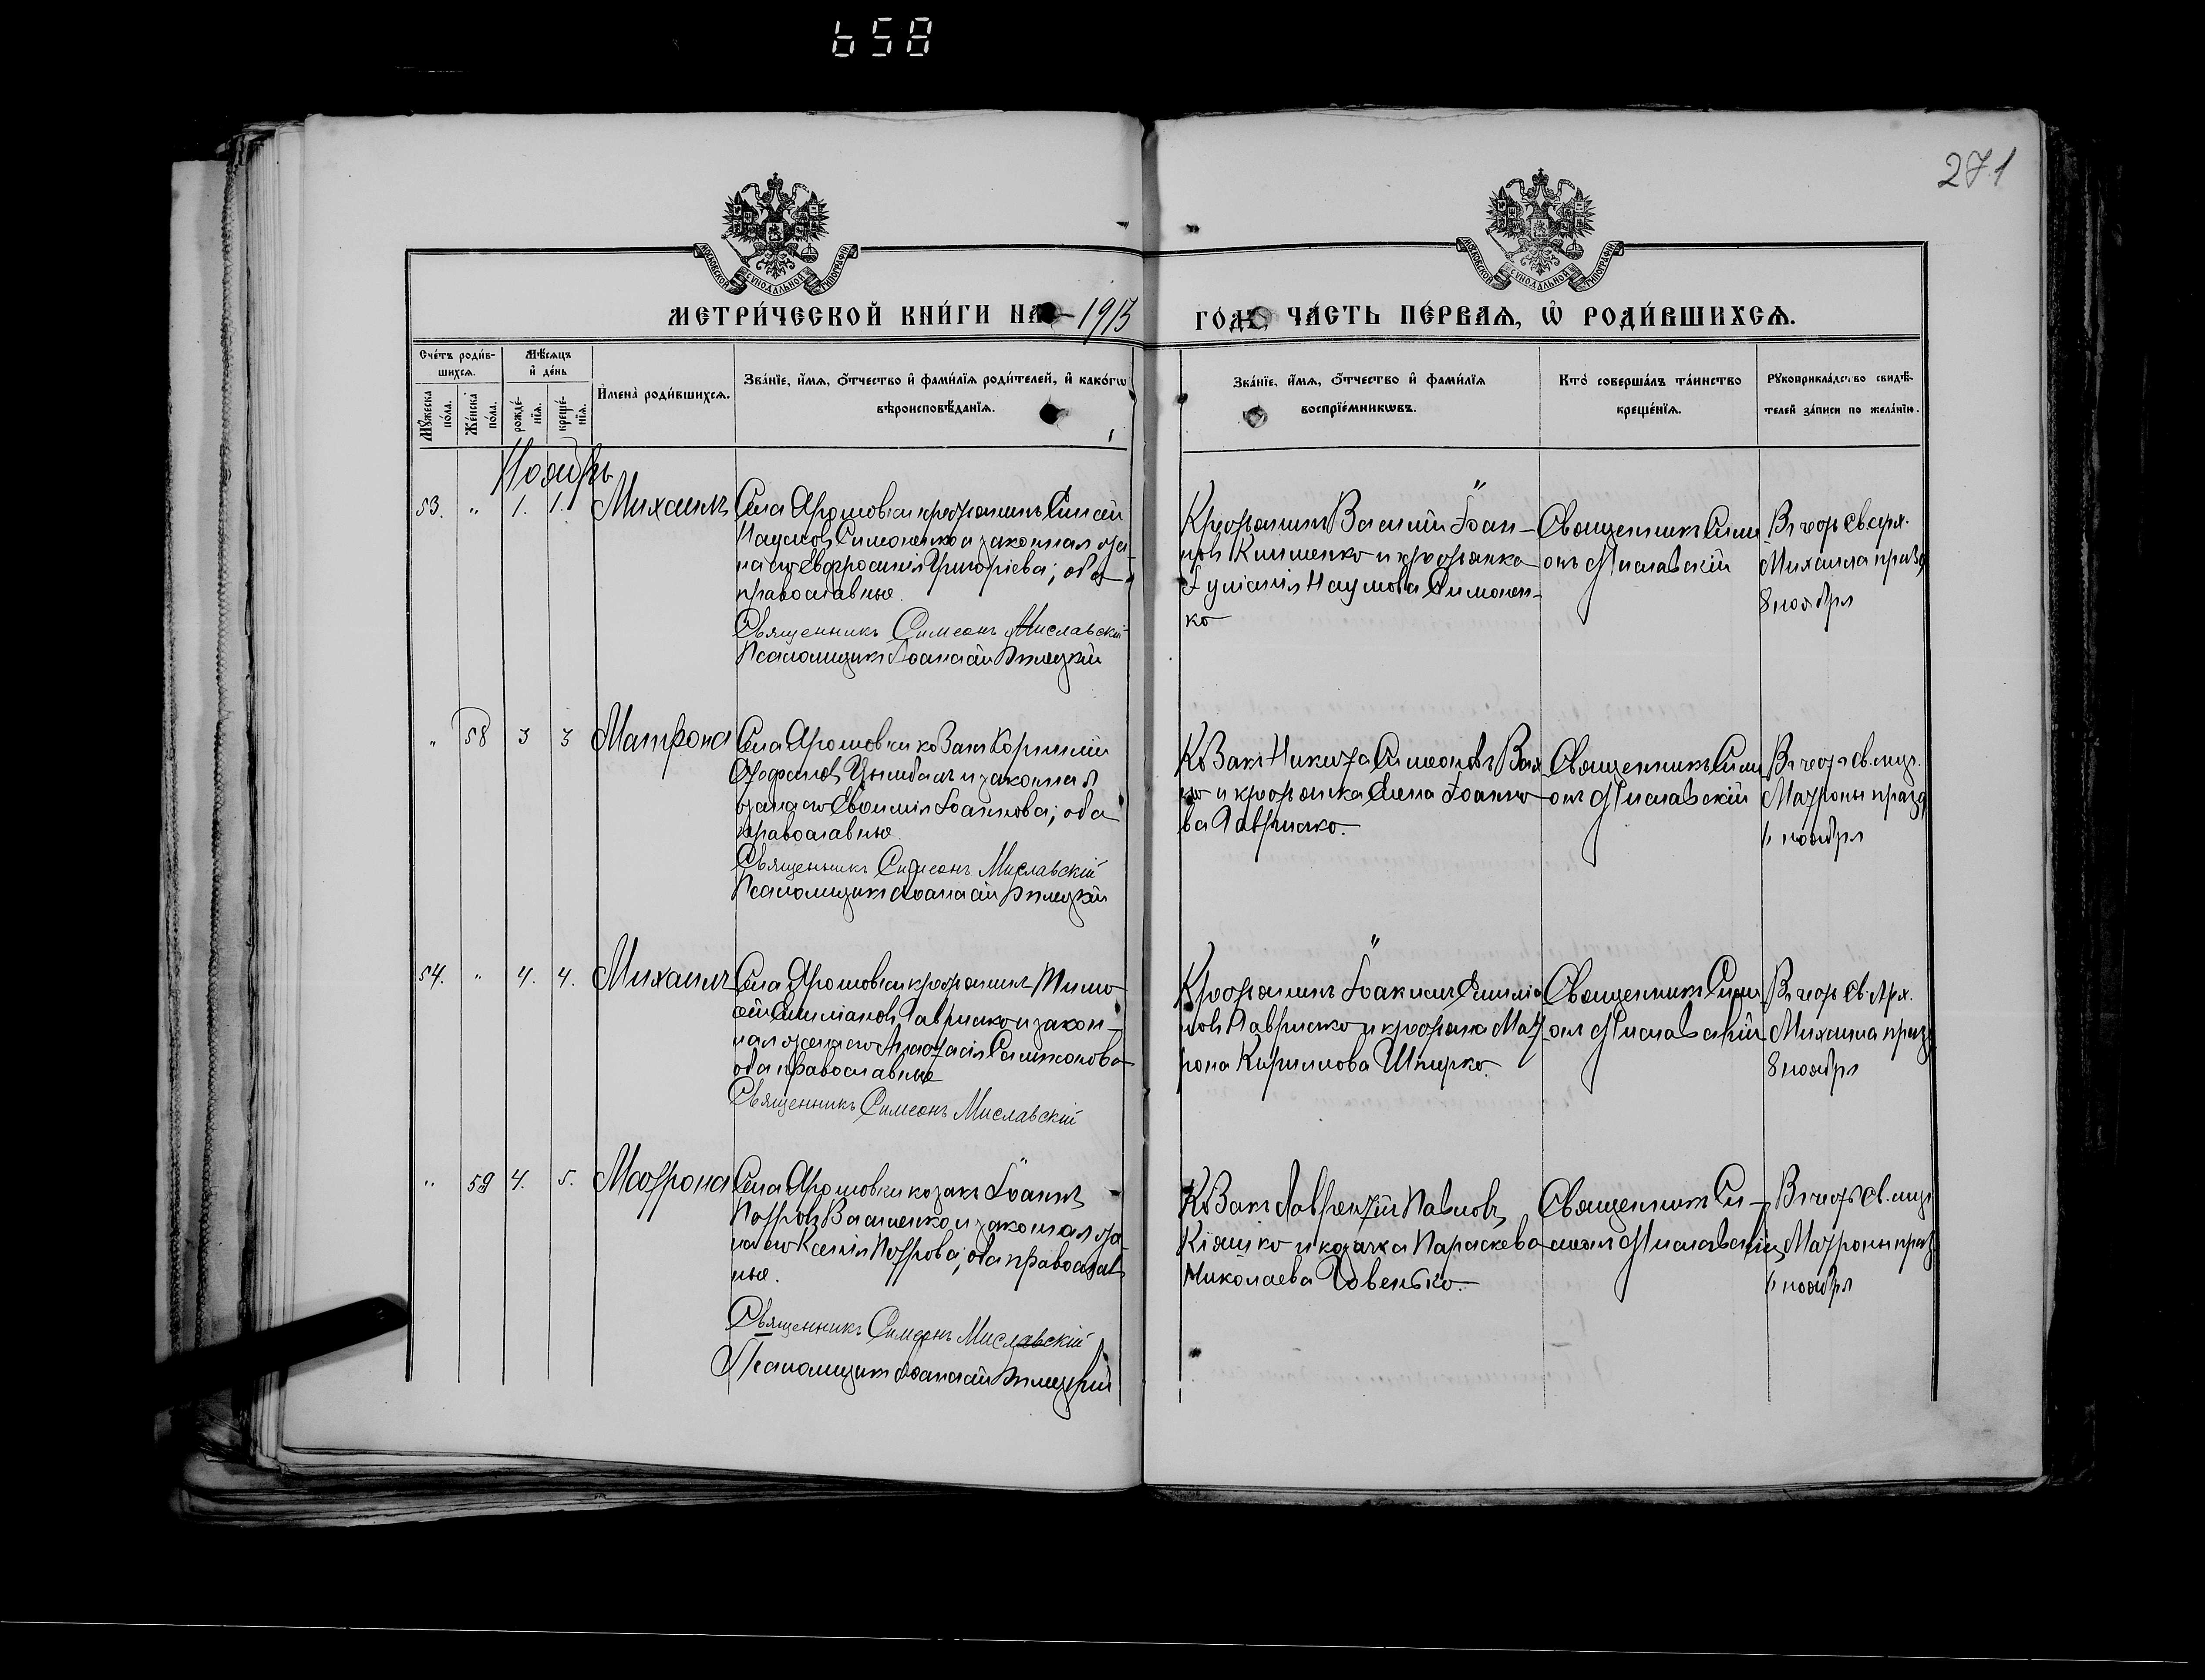 658
271
МОСКОВСКОЙ СѴНОДАЛЬНОЙ ТИПОГРАФІИ
МОСКОВСКОЙ СѴНОДАЛЬНОЙ ТИПОГРАФІИ
МЕТРИ́ЧЕСКОЙ КНИ́ГИ НА 1913 ГО́ДЪ, ЧА́СТЬ ПЕ́РВАѦ, Ѡ҆ РОДИ́ВШИХСѦ.
Сче́тъ роди́в-
шихсѧ.
Мꙋ́жеска по́ла.
Же́нска по́ла.
Мѣ́сѧцъ
и҆ де́нь
рожде́-
нїѧ.
креще́-
нїѧ.
И҆мена̀ роди́вшихсѧ.
Зва́нїе, и҆́мѧ, о҆́тчество и҆ фами́лїѧ роди́телей, и҆ како́гѡ
вѣроисповѣ́данїѧ.
Зва́нїе, и҆́мѧ, о҆́тчество и҆ фами́лїѧ
воспрїе́мникѡвъ.
Кто̀ соверша́лъ та́инство
креще́нїѧ.
Рꙋкоприкла́дство свидѣ́-
телей за́писи по жела́нїю.
Ноябрь
53. " 1. 1. Михаилъ
Села Ярошовки крестьянинъ
Наумовъ Симоненко и законная же-
на его Евфросинія Григоріева; оба
православные.
Священникъ Симеонъ Миславскій
Псаломщикъ
Крестьянинъ Василій Іоан-
новъ Клименко и крестьянка
Іуліанія Наумова Симонен-
ко
Священникъ Симе-
онъ Миславскій
Въ честь св. арх.
Михаила празд.
8 ноября
" 58 3 3 Матрона
Села Ярошовки козакъ Корнилій
Стефановъ Цымбалъ и законная
жена его Евфимія Іоаннова; оба
православные.
Священникъ Симеонъ Миславскій
Псаломщикъ
Козакъ Никита Симеоновъ
и крестьянка Елена Іоанно-
ва Гаврилко.
Священникъ Симе-
онъ Миславскій
Въ честь св. муч.
Матроны празд.
ноября
54. " 4. 4. Михаилъ
Села Ярошовки крестьянинъ Тимо-
фей Гаврилко и закон-
ная жена его Анастасія
оба православные
Священникъ Симеонъ Миславскій
Крестьянинъ Іоакимъ
новъ Гаврилко и крестьянка Мат-
рона Кириллова
Священникъ Симе-
онъ Миславскій
Въ честь Св. Арх.
Михаила празд.
8 ноября
" 59 4. 5. Матрона
Села Ярошовки козакъ Іоаннъ
Петровъ Василенко и законная же-
на его Ксенія Петрова; оба православ-
ные.
Священникъ Симеонъ Миславскій
Псаломщикъ
Козакъ Лаврентій Павловъ
Кіяшко и козачка Параскева
Николаева Човенько.
Священникъ Си-
меонъ Миславскій
Въ честь св. муч.
Матроны празд.
ноября